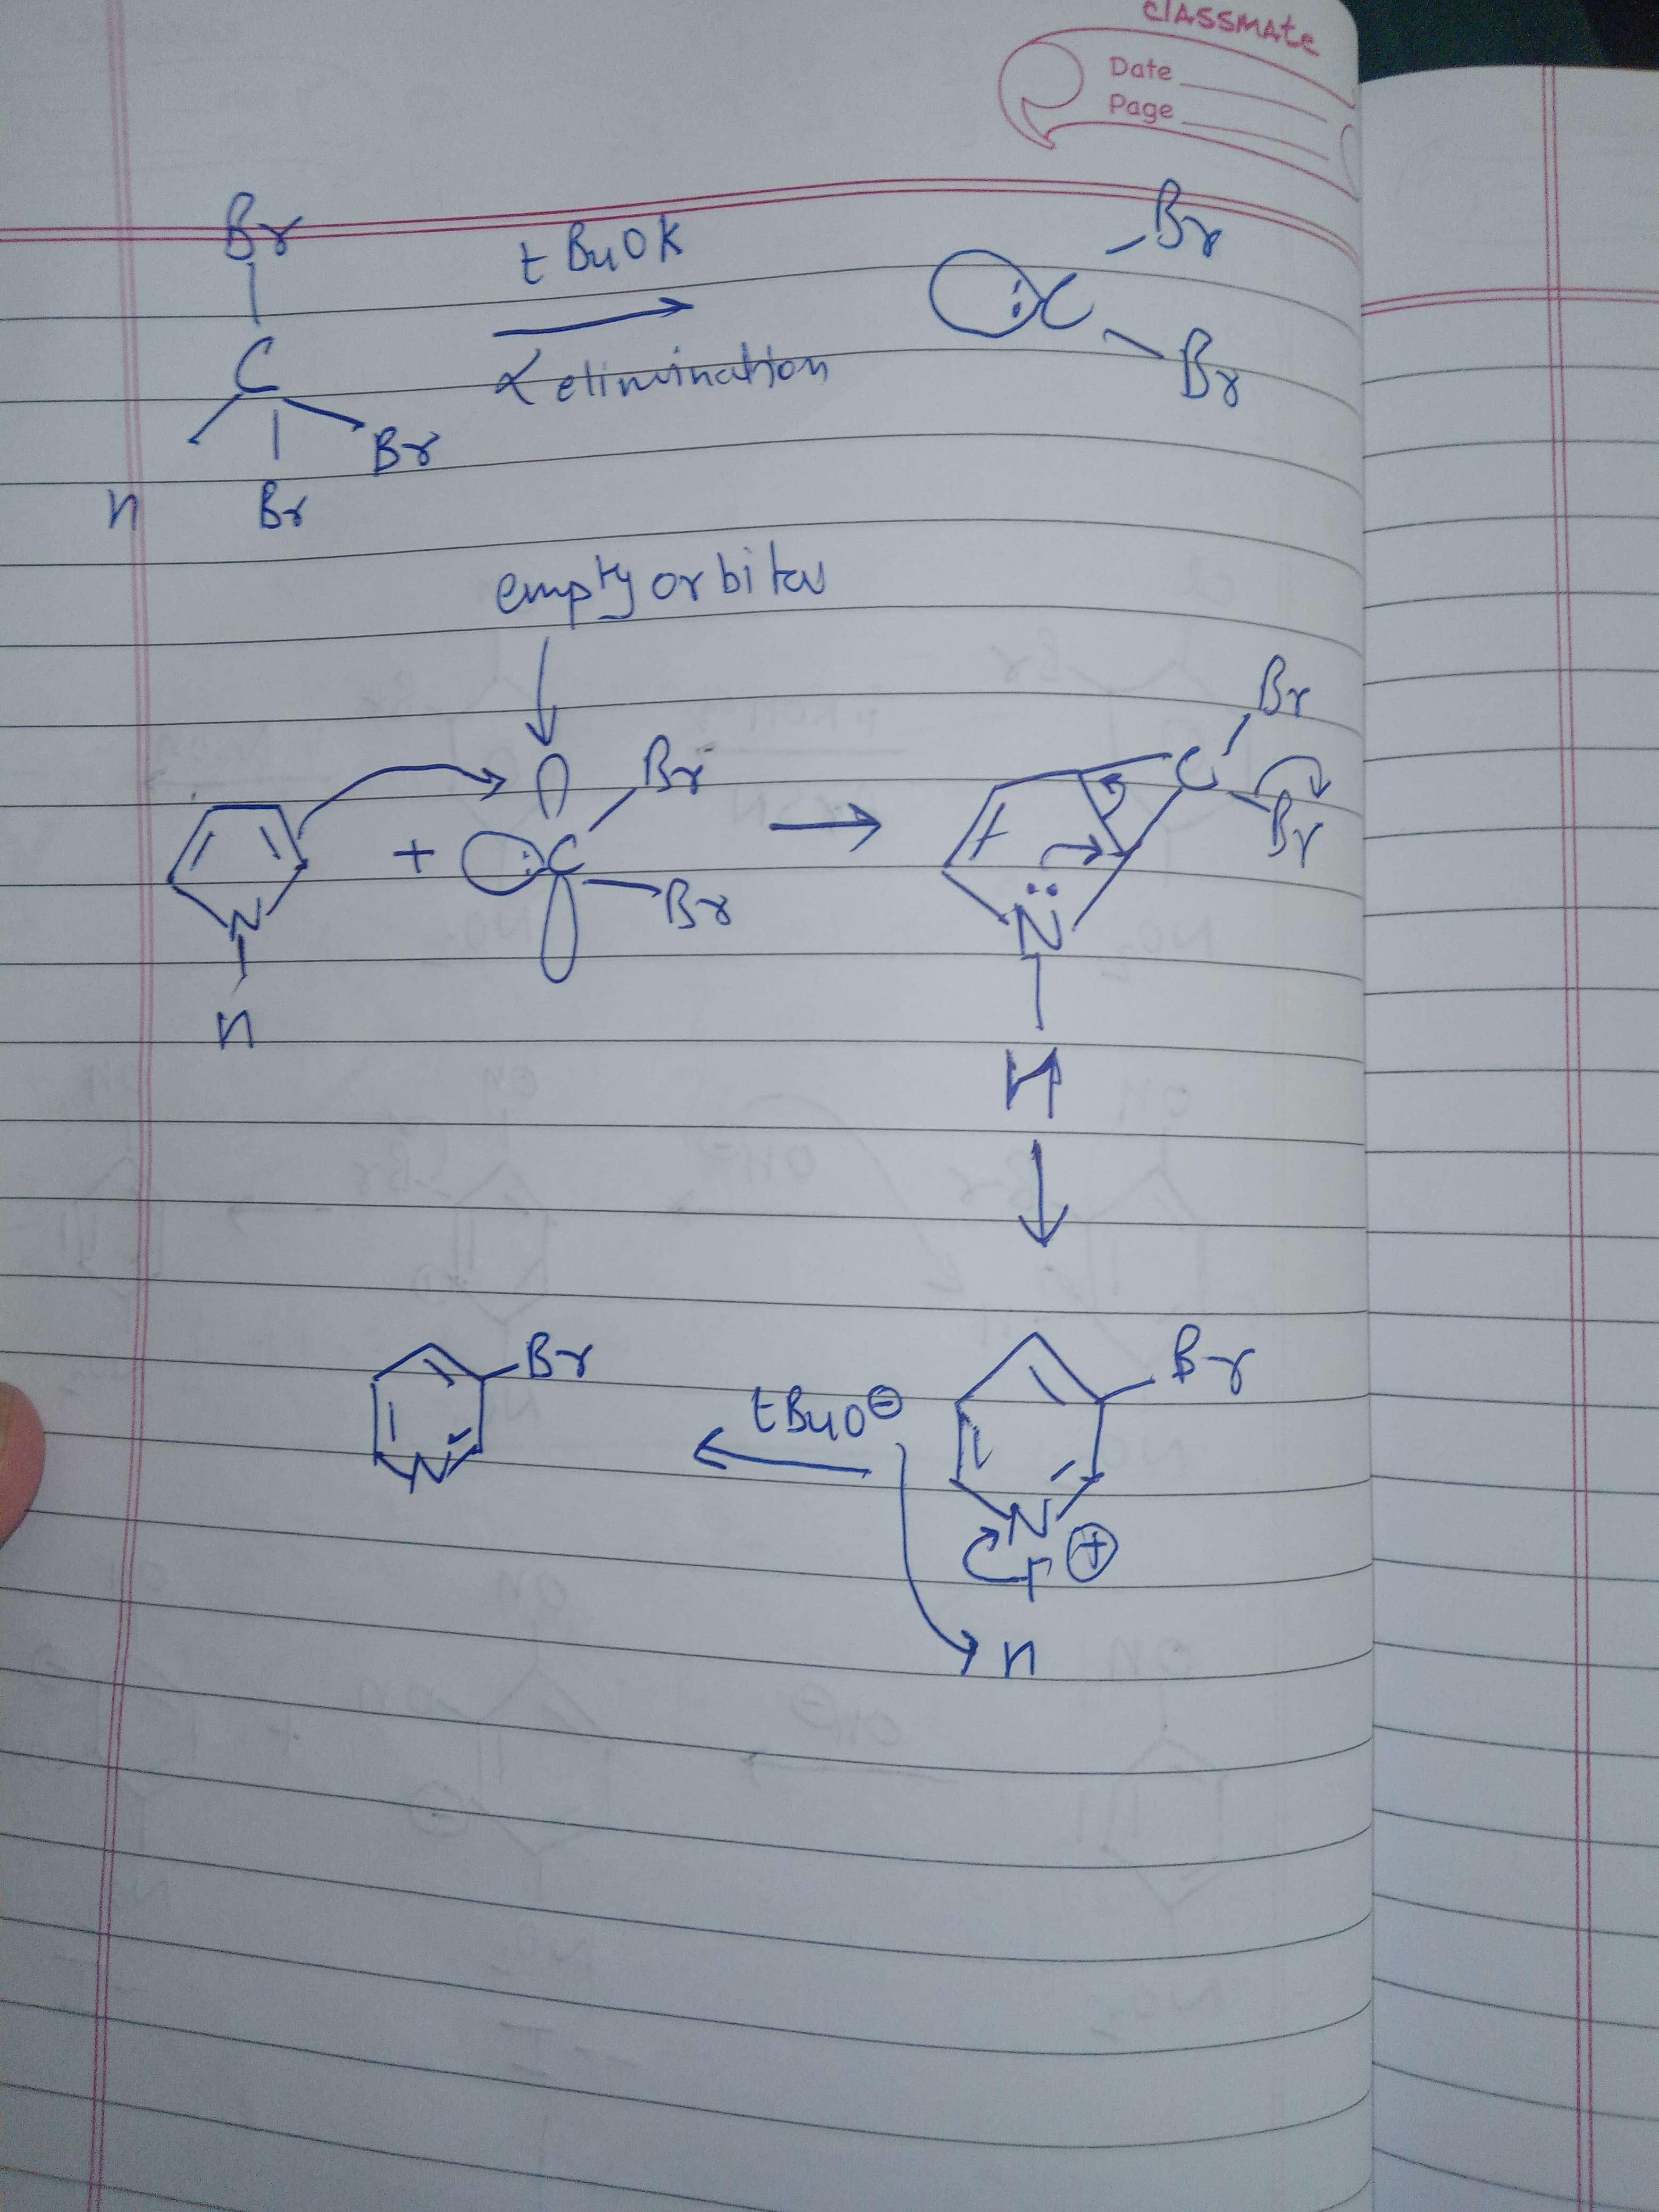 classmate
Date
Page
Br
t BuOK
Br
C
:C
α elimination
Br
Br
H
Br
empty orbital
Br
Br
C
+
:C
Br
Br
N
Br
N
H
H
Br
Br
tBuO⊖
N
N
⊕
H